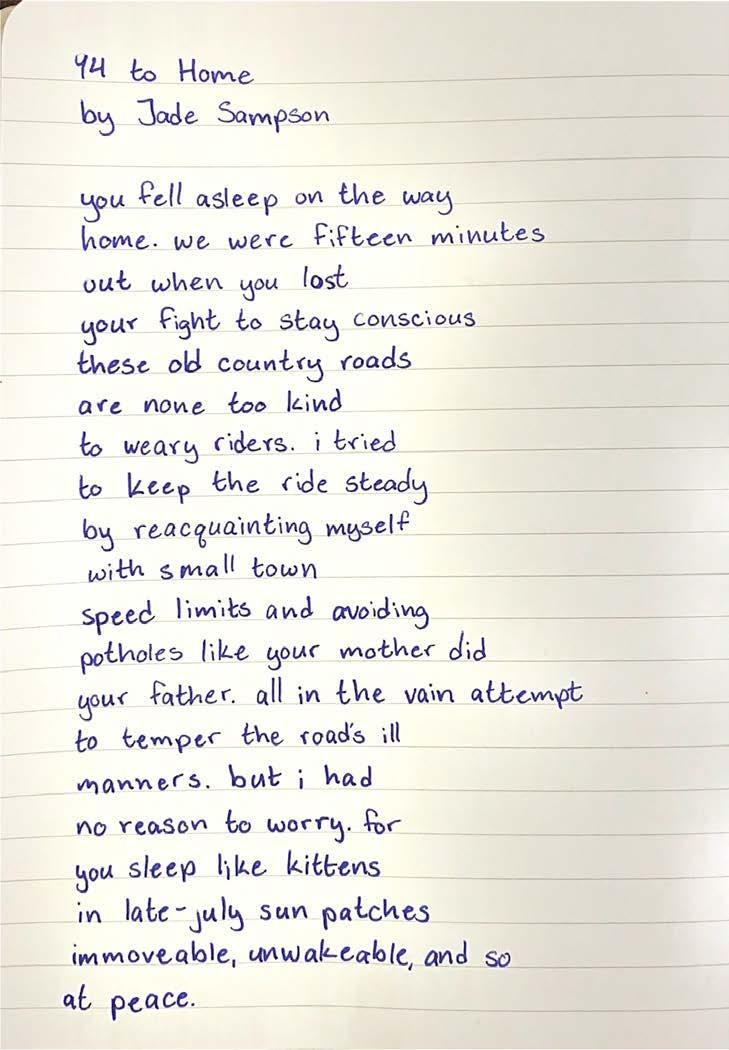 94 to Home
by Jade Sampson
you fell asleep on the way
home. we were fifteen minutes
out when you lost
your fight to stay conscious
these old country roads
are none too kind
to weary riders. i tried
to keep the ride steady
by reacquainting myself
with small town
speed limits and avoiding
potholes like your mother did
your father. all in the vain attempt
to temper the road's ill
manners. but i had
no reason to worry. for
you sleep like kittens
in late-july sun patches
immoveable, unwakeable, and so
at peace.